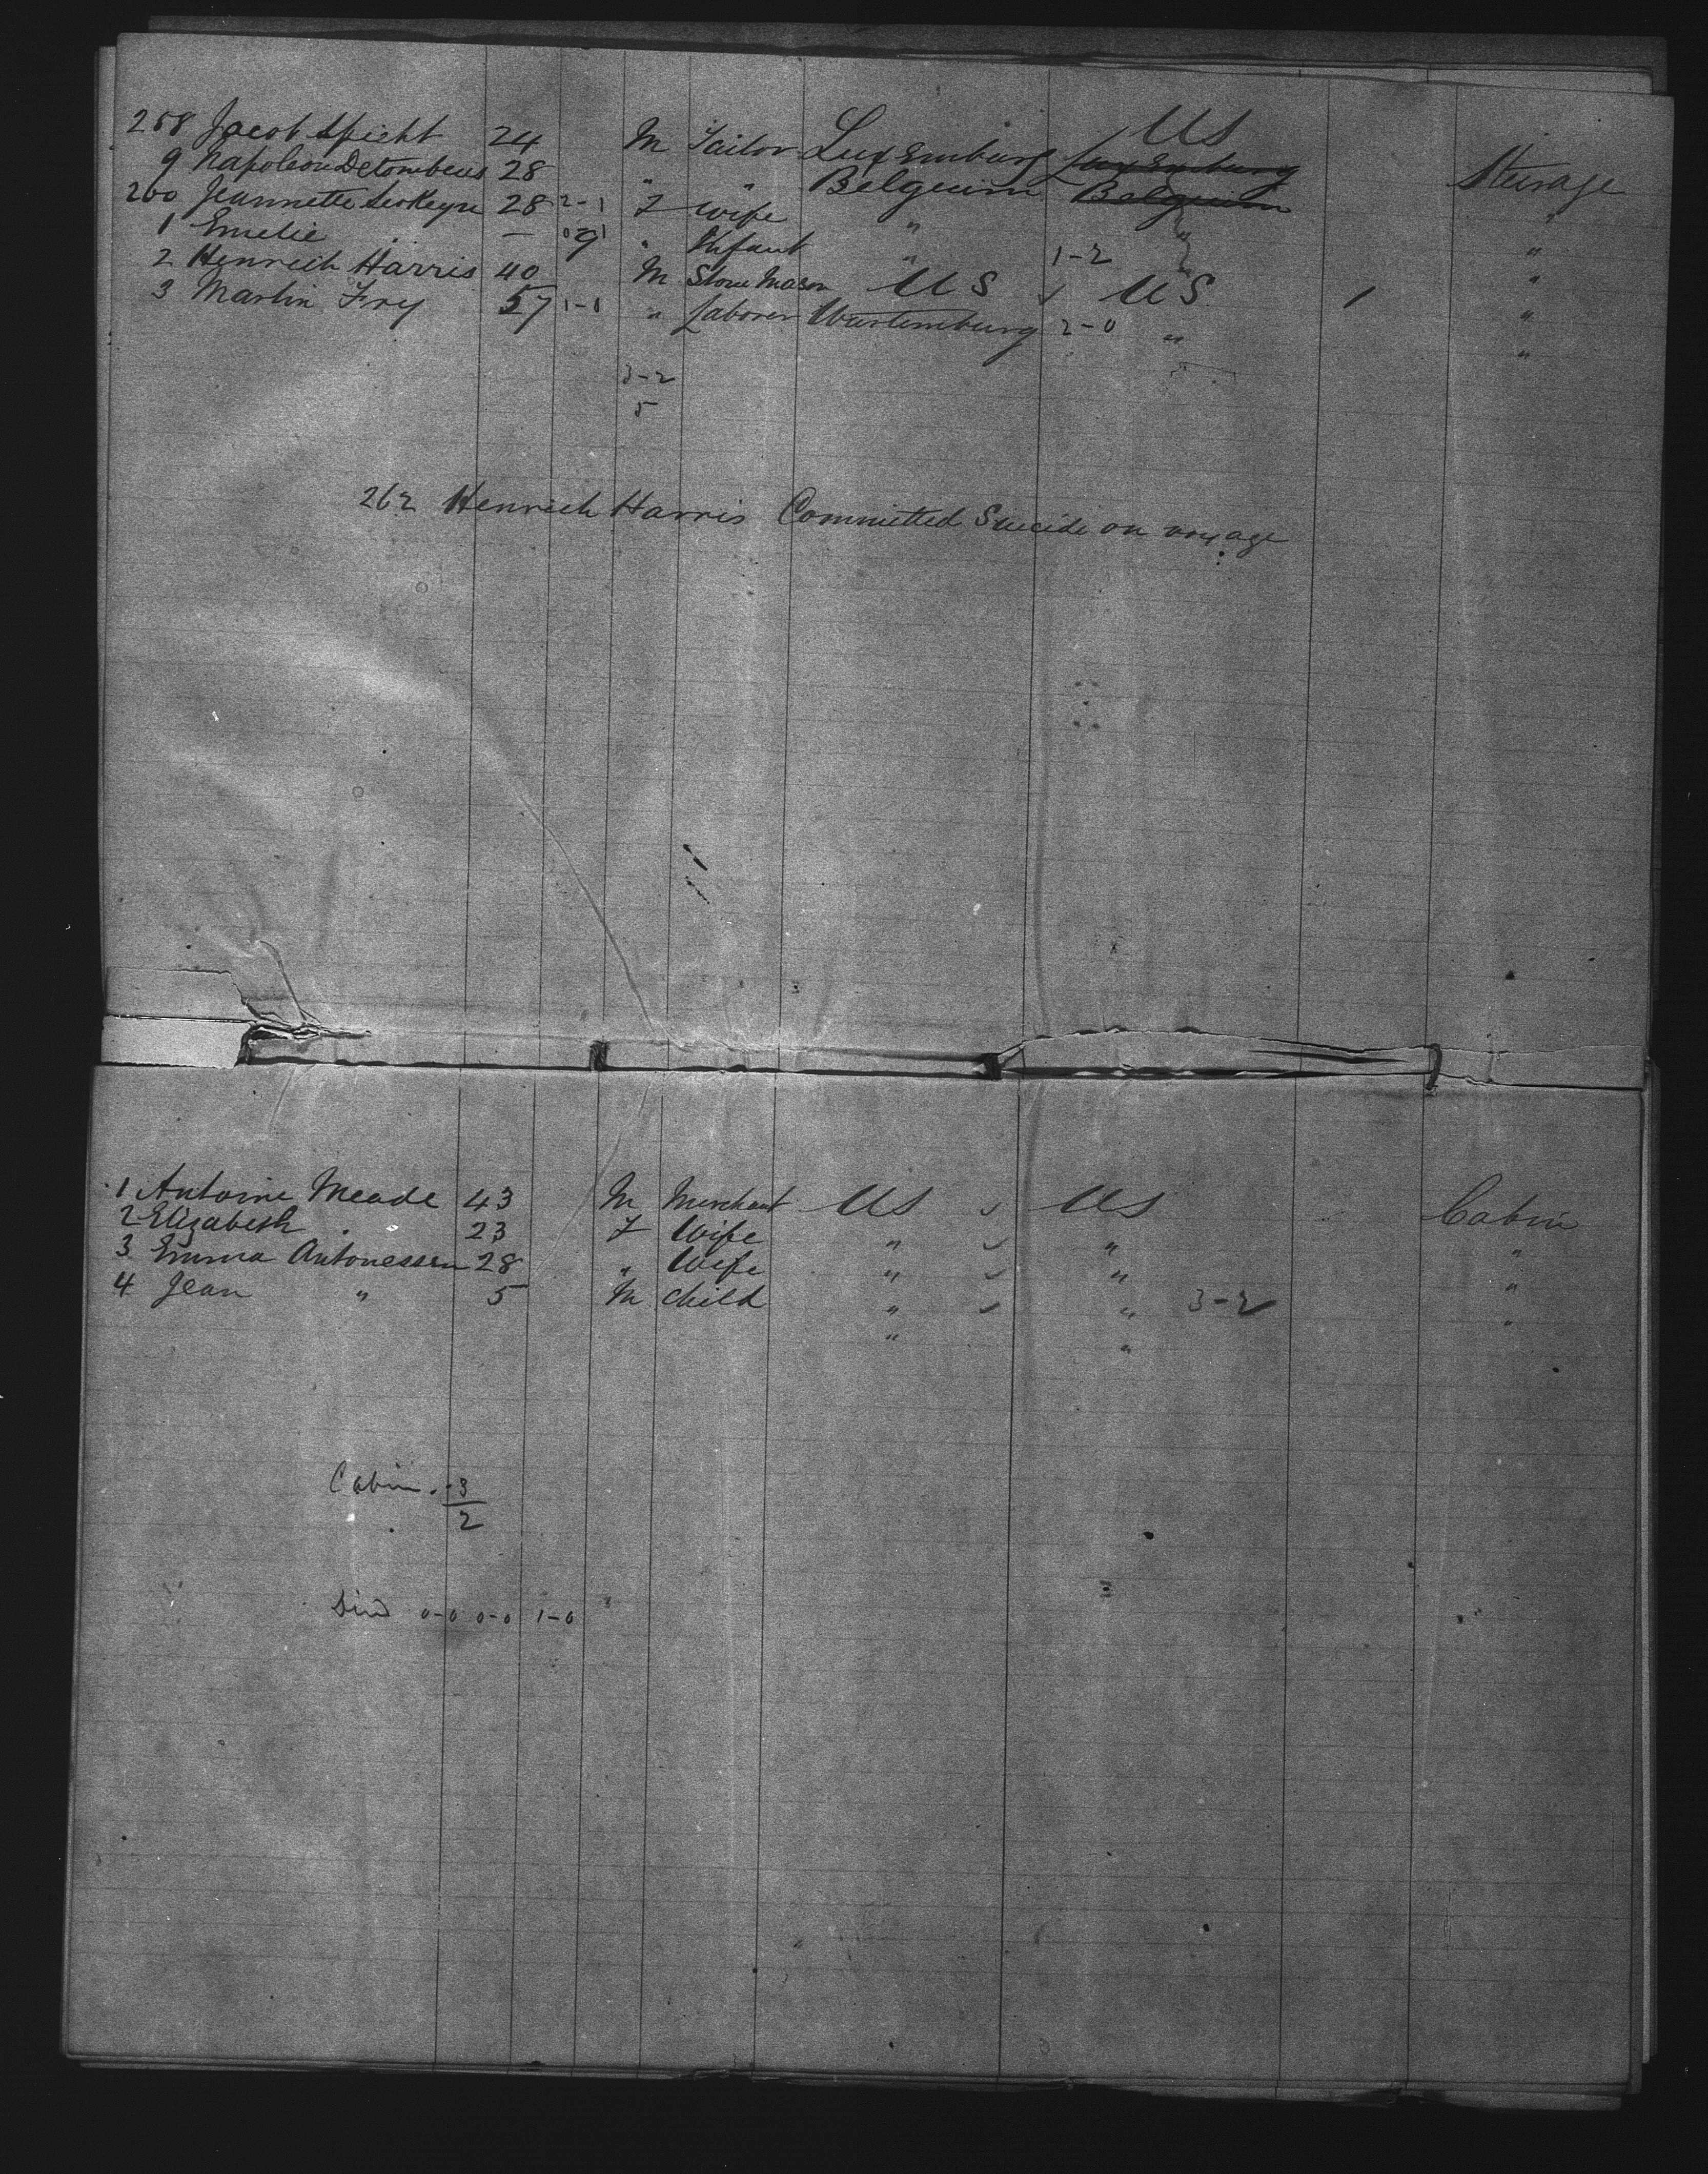 258 Jacob Spicht 24 M Tailor Luxemburg Luxemburg US Steerage
9 Napoleon Detombeus 28 " " Belguim Belguim "
260 Jeannette 28 2-1 F Wife " " "
1 Emelie — 0-1 9 " Infant " 1-2 " "
2 Henreich Harris 40 M Stone Mason US ✓ US / "
3 Martin Fry 57 1-0 " Laborer Wurtemburg 2-0 " "
3-2
5
262 Henreich Harris Committed Suicide on voyage
1 Antoine Meade 43 M Merchant US ✓ US Cabin
2 Elizabeth " 23 F Wife " ✓ " "
3 Emma Antonessen 28 " Wife " ✓ " "
4 Jean " 5 M Child " ✓ " 3-2 "
" "
Cabin. 3
2
Died 0-0 0-0 1-0